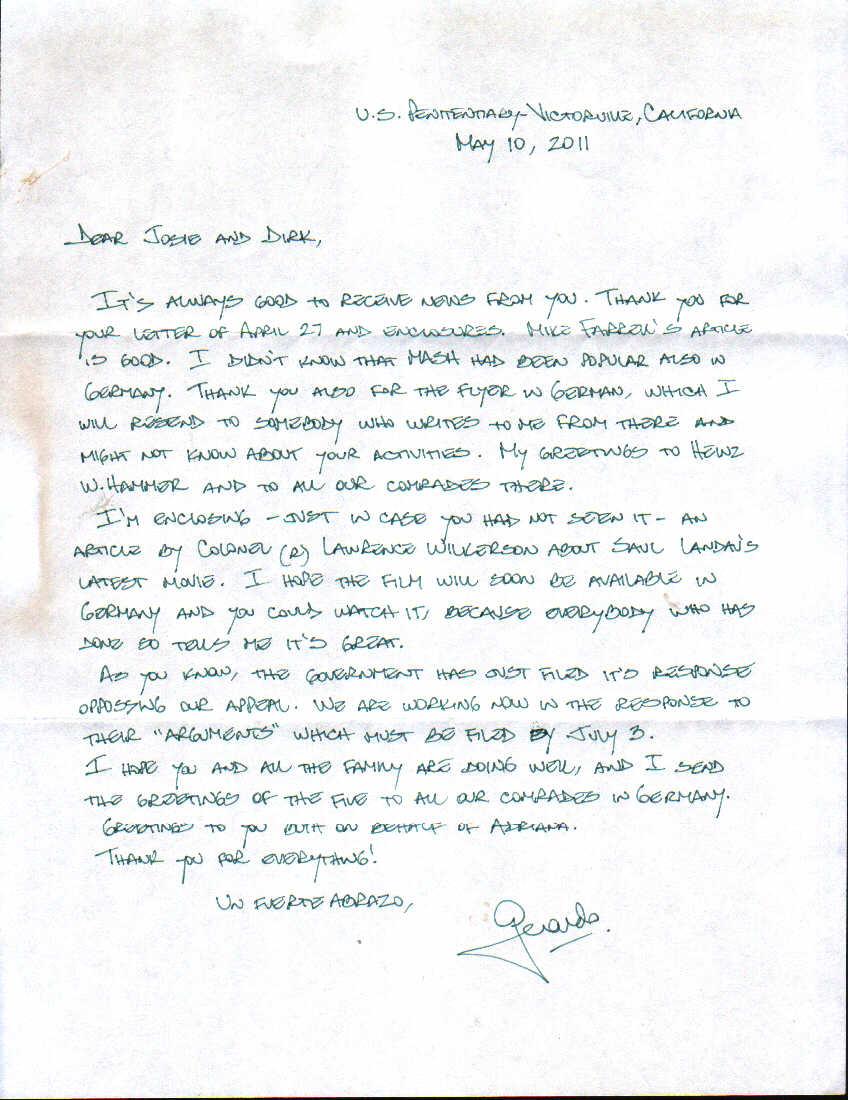 U.S. PENITENTIARY-VICTORVILLE, CALIFORNIA
MAY 10, 2011
DEAR JOSIE AND DIRK,
IT'S ALWAYS GOOD TO RECEIVE NEWS FROM YOU. THANK YOU FOR
YOUR LETTER OF APRIL 27 AND ENCLOSURES. MIKE FARREN'S ARTICLE
IS GOOD. I DIDN'T KNOW THAT MASH HAD BEEN POPULAR ALSO IN
GERMANY. THANK YOU ALSO FOR THE FLYER IN GERMAN, WHICH I
WILL RESEND TO SOMEBODY WHO WRITES TO ME FROM THERE AND
MIGHT NOT KNOW ABOUT YOUR ACTIVITIES. MY GREETINGS TO HEINZ
W. HAMMER AND TO ALL OUR COMRADES THERE.
I'M ENCLOSING - JUST IN CASE YOU HAD NOT SEEN IT - AN
ARTICLE BY COLONEL (R) LAWRENCE WILKERSON ABOUT SAUL LANDAU'S
LATEST MOVIE. I HOPE THE FILM WILL SOON BE AVAILABLE IN
GERMANY AND YOU COULD WATCH IT, BECAUSE EVERYBODY WHO HAS
DONE SO TELLS ME IT'S GREAT.
AS YOU KNOW, THE GOVERNMENT HAS JUST FILED IT'S RESPONSE
OPPOSSING OUR APPEAL. WE ARE WORKING NOW IN THE RESPONSE TO
THEIR "ARGUMENTS" WHICH MUST BE FILED BY JULY 3.
I HOPE YOU AND ALL THE FAMILY ARE DOING WELL, AND I SEND
THE GREETINGS OF THE FIVE TO ALL OUR COMRADES IN GERMANY.
GREETINGS TO YOU BOTH ON BEHALF OF ADRIANA.
THANK YOU FOR EVERYTHING!
UN FUERTE ABRAZO,
Gerardo.